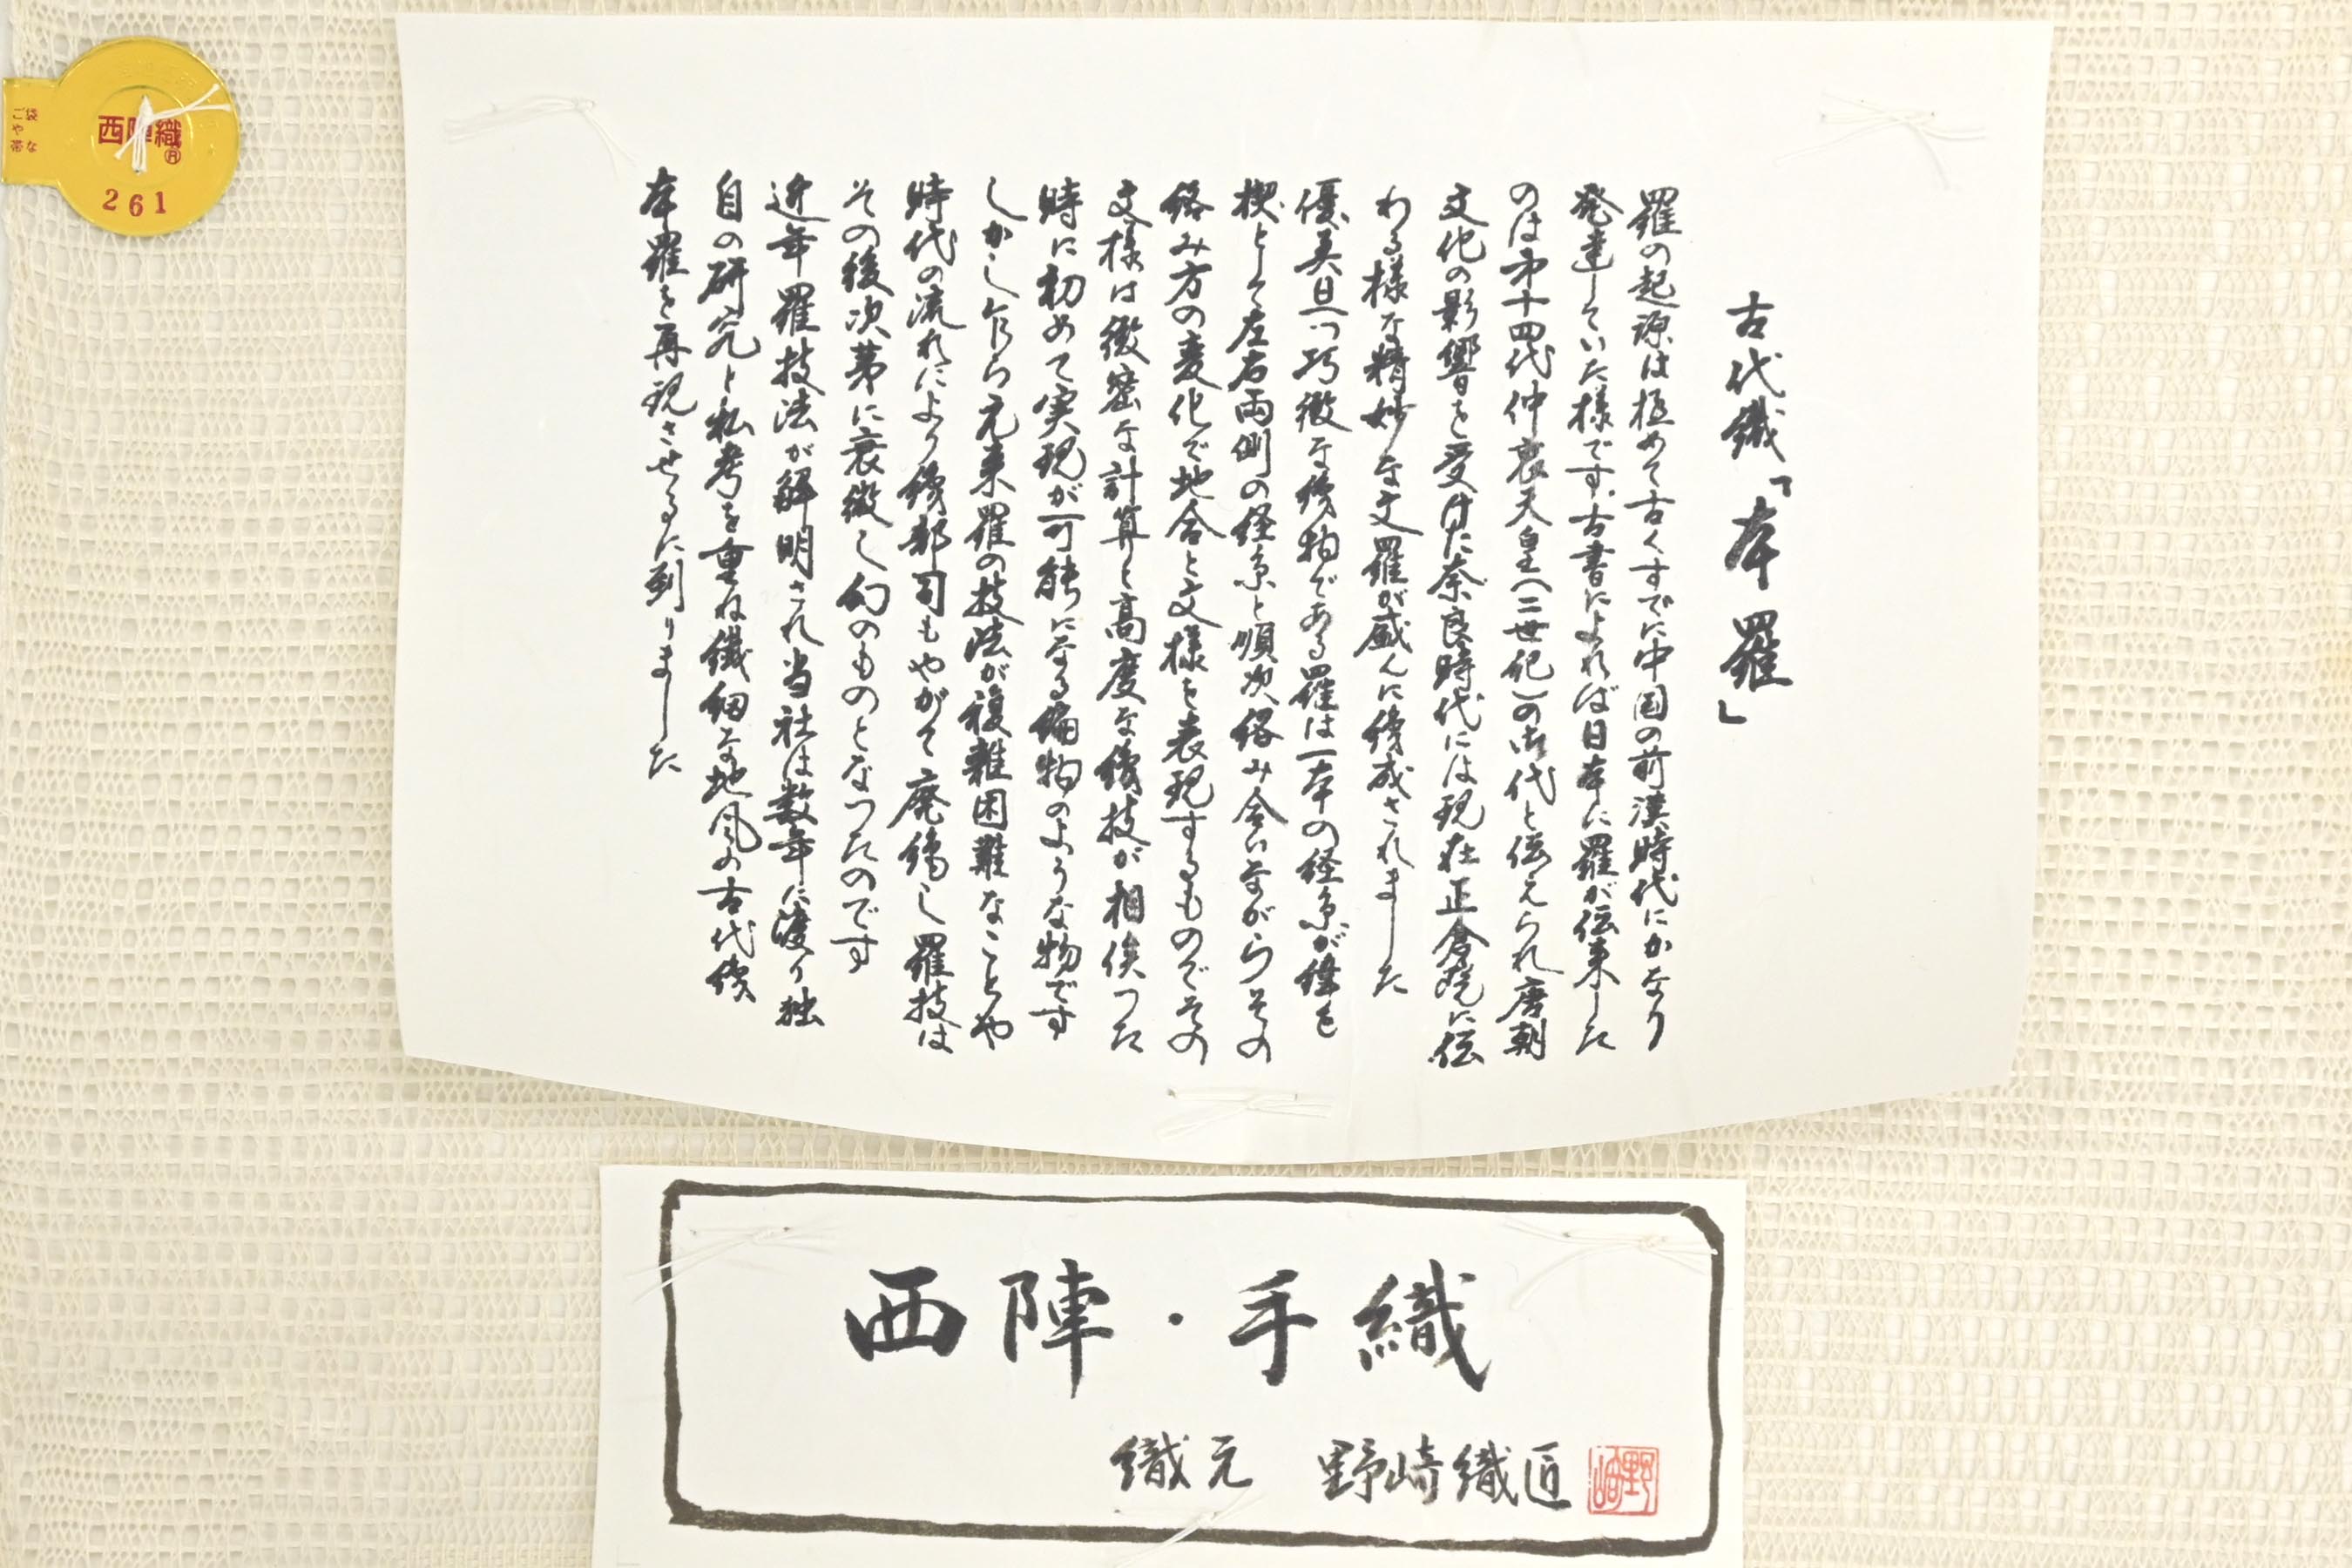 古代織「本羅」
羅の起源は極めて古くすでに中国の前漢時代にかなり
発達していた様です。古書によれば日本に羅が伝来した
のは第十四代仲哀天皇(二世紀)の御代と伝えられ唐朝
文化の影響を受けた奈良時代には現在正倉院に伝
わる様な精妙な文羅が盛んに織成されました
優美且つ巧緻な織物である羅は一本の経糸が緯を
楔として左右両側の経糸と順次絡み合いながらその
絡み方の変化で地合と文様を表現するものでその
文様は緻密な計算と高度な織技が相俟つた
時に初めて実現が可能になる編物のような物です
しかし乍ら元来羅の技法が複雑困難なことや
時代の流れにより織部司もやがて廃絶し羅技は
その後次第に衰微し幻のものとなつたのです
近年羅技法が解明され当社は数年に渡り独
自の研究と私考を重ね繊細な地風の古代織
本羅を再現させるに到りました
西陣・手織
織元 野崎織匠
野崎
西陣織
261
袋なごや帯